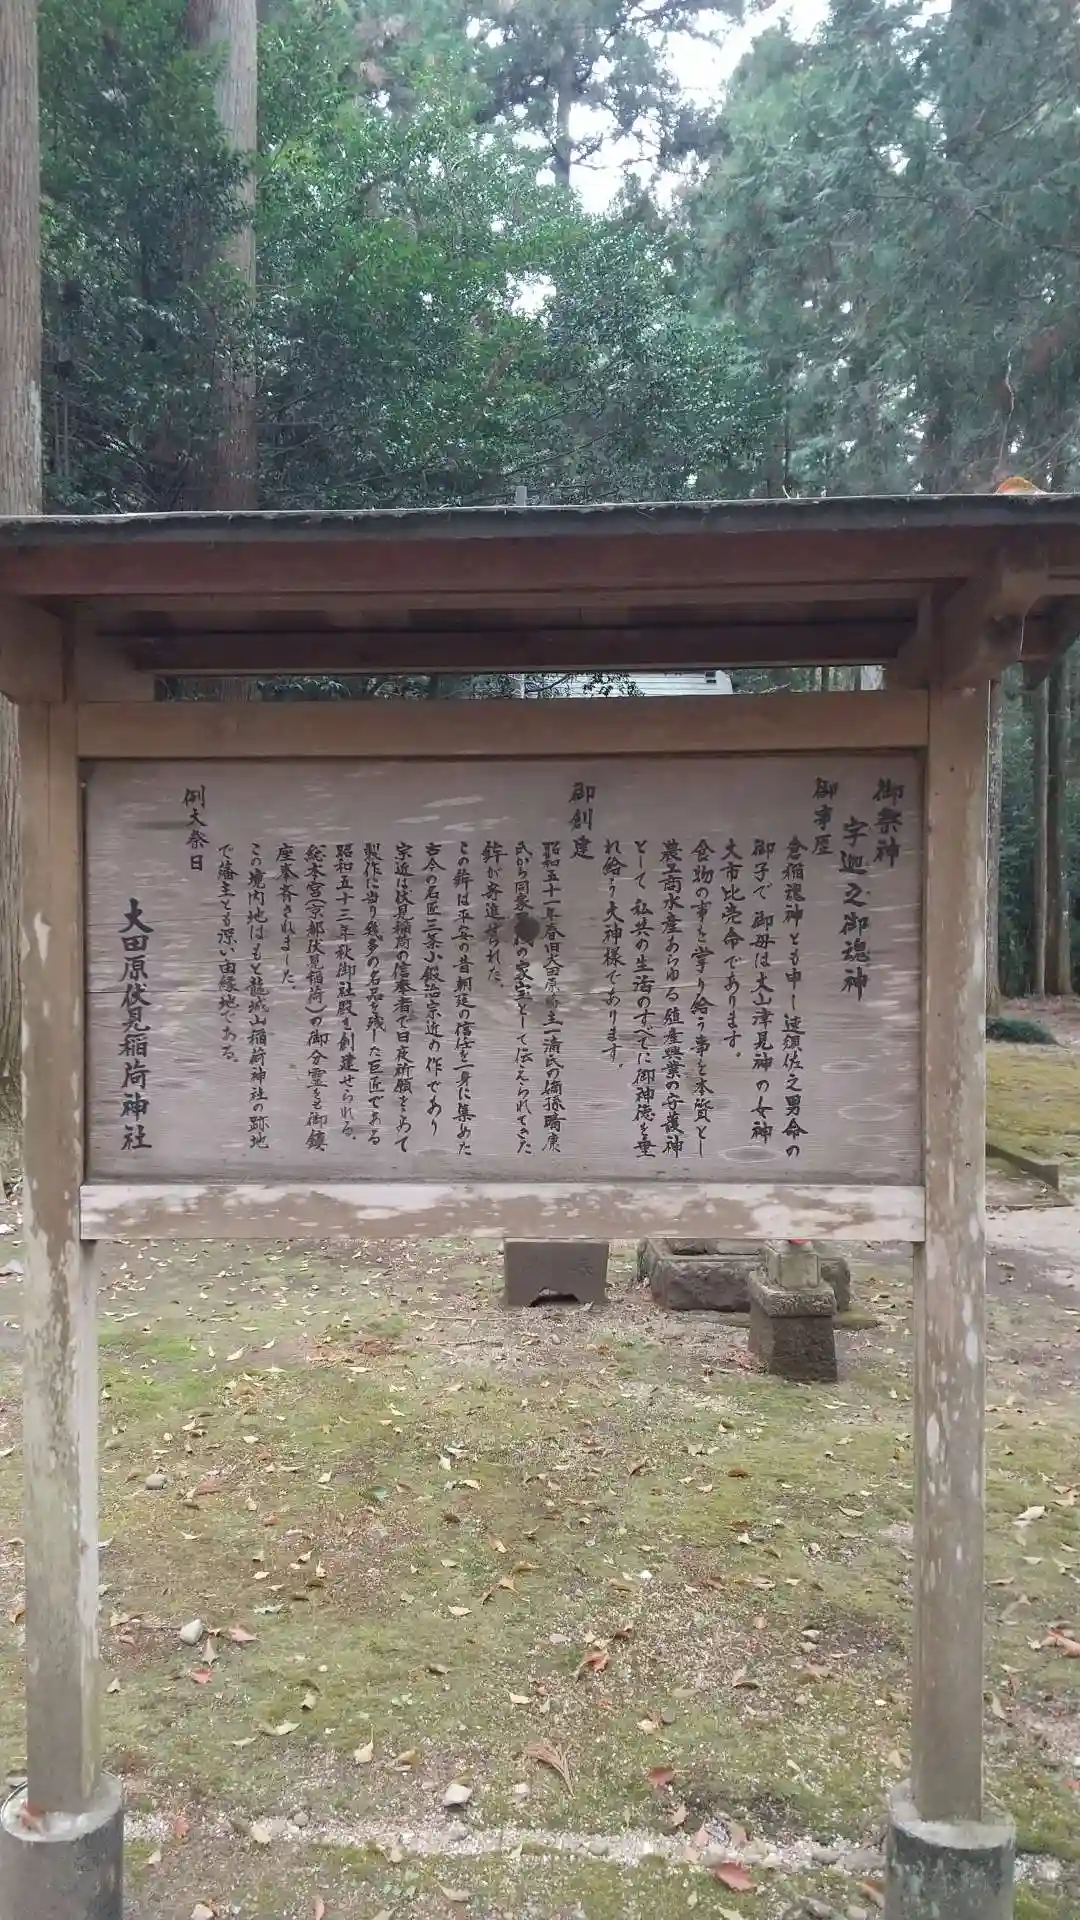 御祭神
宇迦之御魂神
御事歴
倉稲魂神とも申し速須佐之男命の
御子で御母は大山津見神の女神
大市比売命であります。
食物の事を掌り給う事を本質とし
農工商水産あらゆる殖産興業の守護神
として私共の生活のすべてに御神徳を垂
れ給う大神様であります。
御創建
昭和五十一年春旧大田原藩主一清氏の嫡孫 氏から同家 の家宝として伝えられてきた
鉾が寄進せられた。
この鉾は平安の昔朝廷の信任を一身に集めた
古今の名匠三条小鍛冶宗近の作であり
宗近は伏見稲荷の信奉者で日夜祈願をこめて
製作に当り幾多の名品を残した巨匠である
昭和五十三年秋御社殿も創建せられる。
総本宮(京都伏見稲荷)の御分霊をも御鎮
座奉斉されました。
この境内地はもと龍城山稲荷神社の跡地
で藩主とも深い由縁地である。
例大祭日
大田原伏見稲荷神社